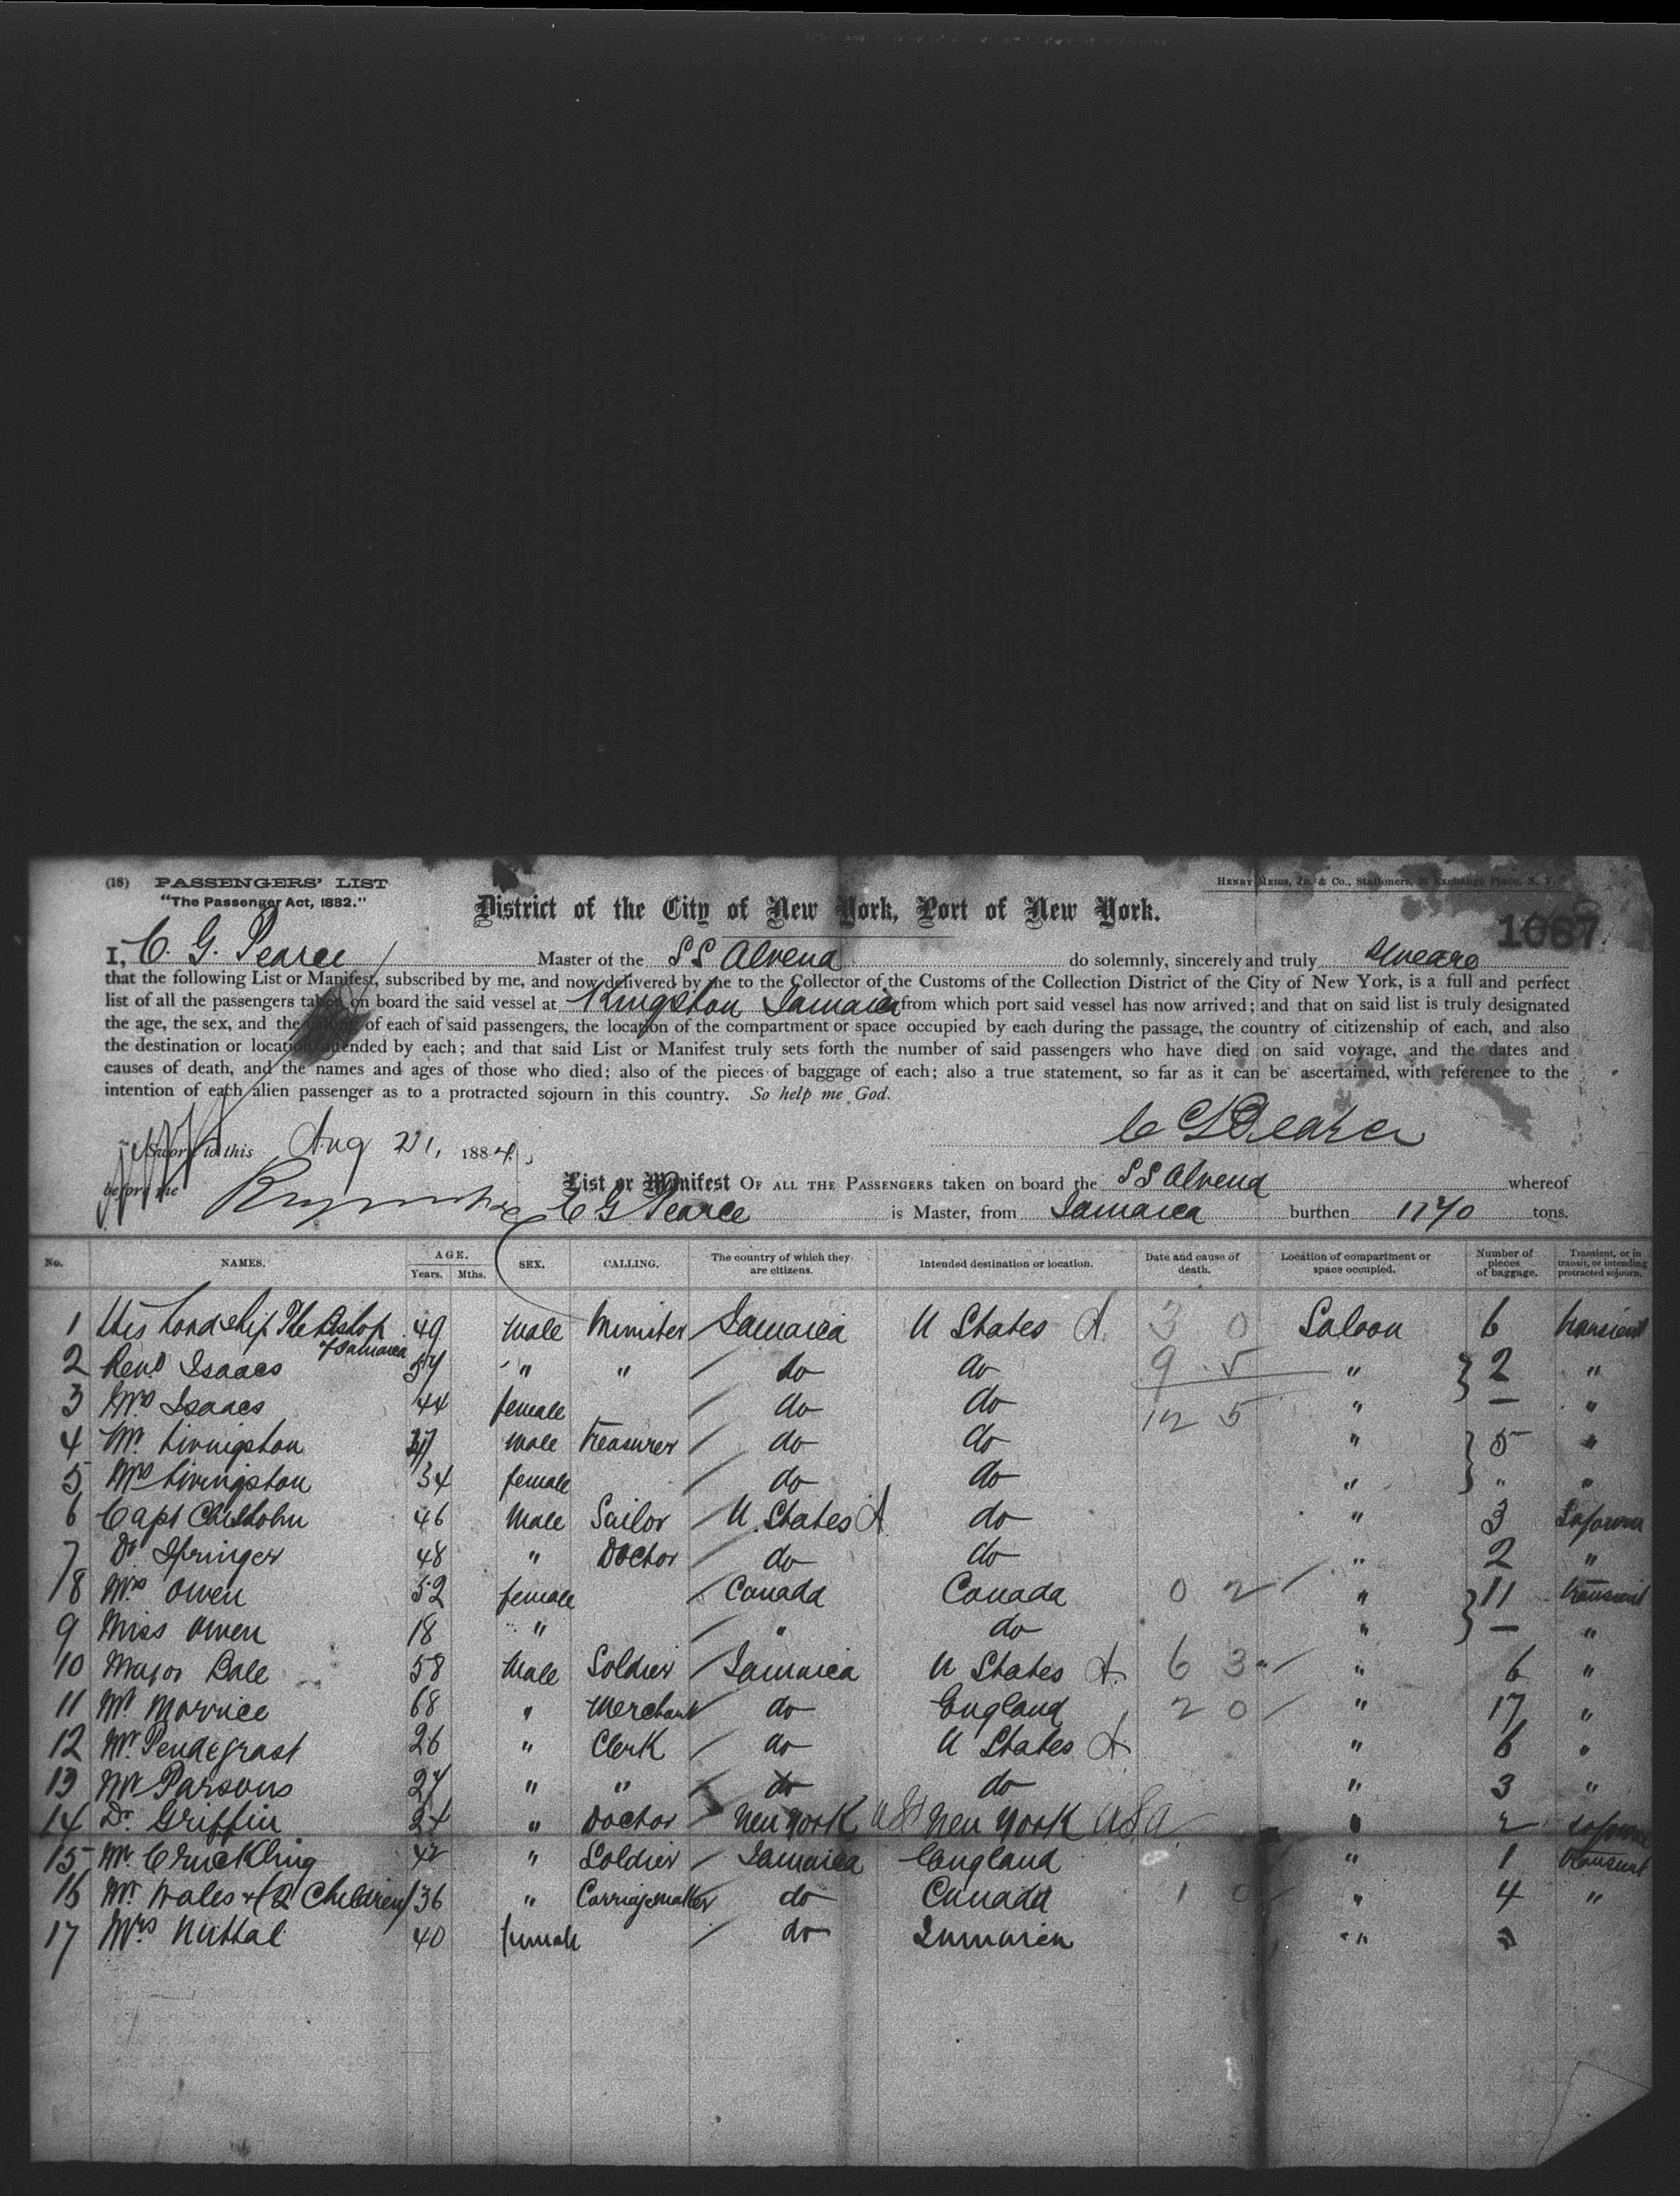 (18) PASSENGERS' LIST
"The Passenger Act, 1882."
HENRY MEIGS, JR. & CO., Stationers, Exchange Place, N. Y.
District of the City of New York, Port of New York.
1087
I, C. G. Pearce Master of the SS Alvena do solemnly, sincerely and truly swear
that the following List or Manifest, subscribed by me, and now delivered by me to the Collector of the Customs of the Collection District of the City of New York, is a full and perfect
list of all the passengers taken on board the said vessel at Kingston Jamaica from which port said vessel has now arrived; and that on said list is truly designated
the age, the sex, and the of each of said passengers, the location of the compartment or space occupied by each during the passage, the country of citizenship of each, and also
the destination or location intended by each; and that said List or Manifest truly sets forth the number of said passengers who have died on said voyage, and the dates and
causes of death, and the names and ages of those who died; also of the pieces of baggage of each; also a true statement, so far as it can be ascertained, with reference to the
intention of each alien passenger as to a protracted sojourn in this country. So help me God.
C G Pearce
Sworn to this Aug 21, 1884.
before me
List or Manifest OF ALL THE PASSENGERS taken on board the SS Alvena whereof
C G Pearce is Master, from Jamaica burthen tons.
No. NAMES. AGE. Years. Mths. SEX. CALLING. The country of which they are citizens. Intended destination or location. Date and cause of death. Location of compartment or space occupied. Number of pieces of baggage. Transient, or in transit, or intending protracted sojourn.
1 His Lordship The Bishop of Jamaica 49 Male Minister Jamaica U States 3 0 Saloon 6 transient
2 Revd Isaacs " " do do 9 5 " 2 "
3 Mrs Isaacs 44 female do do 12 5 " — "
4 Mr Livingston male Treasurer do do " 5 "
5 Mrs Livingston 34 female do do " " "
6 Capt Chisholm 46 Male Sailor U. States do " 3 Sojourn
7 Dr Springer 48 " Doctor do do " 2 "
8 Mrs Owen 52 female Canada Canada 0 2 " 11 transient
9 Miss Owen 18 " " do " — "
10 Major Bale 58 Male Soldier Jamaica U States 6 3 " 6 "
11 Mr Morrice 68 " Merchant do England 2 0 " 17 "
12 Mr Pendegrast 26 " Clerk do U States " 6 "
13 Mr Parsons 27 " " do do " 3 "
14 Dr Griffin 24 " Doctor New York US New York USA " 2 Sojourn
15 Mr Cruckling 42 " Soldier Jamaica England " 1 transient
16 Mr Wales & (2 Children) 36 " Carriagemaker do Canada 1 0 " 4 "
17 Mrs Nuttal 40 female do Jamaica "